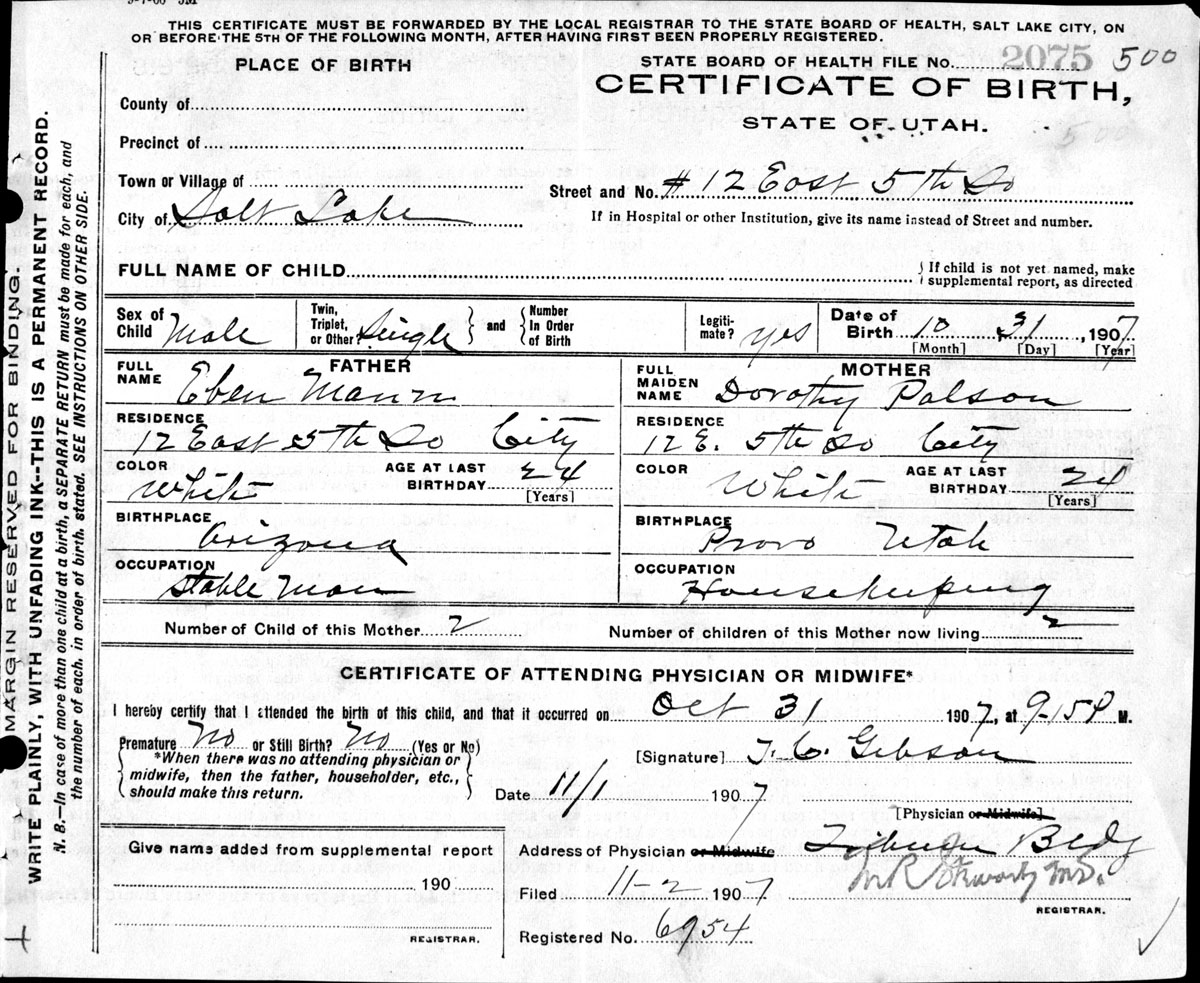 THIS CERTIFICATE MUST BE FORWARDED BY THE LOCAL REGISTRAR TO THE STATE BOARD OF HEALTH, SALT LAKE CITY, ON
OR BEFORE THE 5TH OF THE FOLLOWING MONTH, AFTER HAVING FIRST BEEN PROPERLY REGISTERED.
PLACE OF BIRTH
STATE BOARD OF HEALTH FILE No. 2075 500
CERTIFICATE OF BIRTH,
STATE OF UTAH.
County of
Precinct of
Town or Village of
Street and No. # 12 East 5th So
City of Salt Lake
If in Hospital or other Institution, give its name instead of Street and number.
FULL NAME OF CHILD
If child is not yet named, make
supplemental report, as directed
Sex of Child Male
Twin, Triplet, or Other? Single
and
Number In Order of Birth
Legiti-mate? yes
Date of Birth 10 31, 1907
[Month] [Day] [Year]
FATHER
FULL NAME Eben Mann
RESIDENCE
12 East 5th So City
COLOR White
AGE AT LAST BIRTHDAY 24
[Years]
BIRTHPLACE
Arizona
OCCUPATION
Stable Man
MOTHER
FULL MAIDEN NAME Dorothy Polson
RESIDENCE
12 E. 5th So City
COLOR White
AGE AT LAST BIRTHDAY 24
[Years]
BIRTHPLACE
Provo Utah
OCCUPATION
Housekeeping
Number of Child of this Mother 2
Number of children of this Mother now living 2
CERTIFICATE OF ATTENDING PHYSICIAN OR MIDWIFE*
I hereby certify that I attended the birth of this child, and that it occurred on Oct 31 1907, at 9-15 P M.
Premature No or Still Birth? No (Yes or No)
*When there was no attending physician or
midwife, then the father, householder, etc.,
should make this return.
[Signature] T. C. Gibson
Date 11/1 1907
[Physician or Midwife]
Address of Physician or Midwife Bldg
Filed 11-2 1907
M.D.
REGISTRAR.
Registered No. 6954
Give name added from supplemental report
190
REGISTRAR.
MARGIN RESERVED FOR BINDING.
WRITE PLAINLY, WITH UNFADING INK--THIS IS A PERMANENT RECORD.
N. B.—In case of more than one child at a birth, a SEPARATE RETURN must be made for each, and
the number of each, in order of birth, stated. SEE INSTRUCTIONS ON OTHER SIDE.